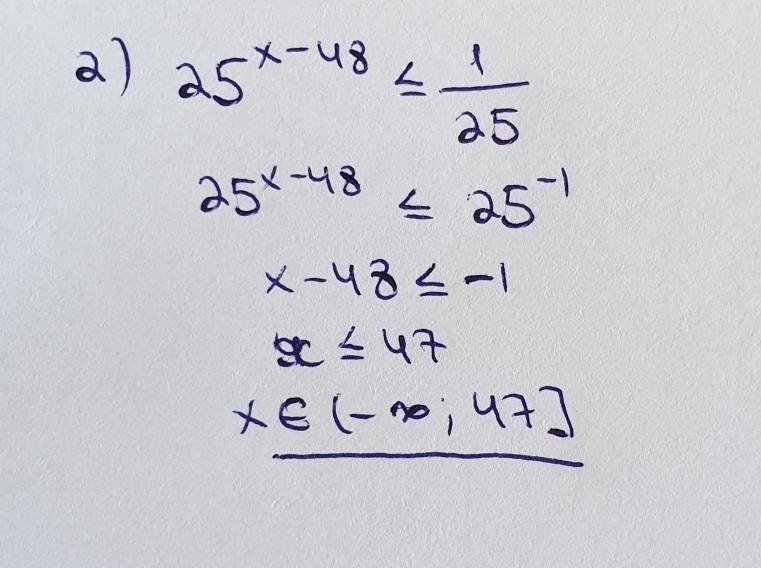 2) 25^(x-48) ≤ 1/25
25^(x-48) ≤ 25^(-1)
x-48 ≤ -1
x ≤ 47
x ∈ (-∞; 47]